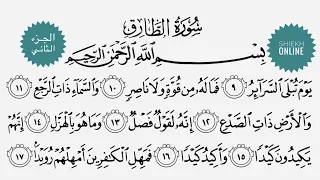 الجزء الثاني
سُورَةُ الطَّارِقِ
SHIEKH ONLINE
بِسْمِ اللَّهِ الرَّحْمَٰنِ الرَّحِيمِ
يَوْمَ تُبْلَى السَّرَائِرُ ٩ فَمَا لَهُ مِن قُوَّةٍ وَلَا نَاصِرٍ ١٠ وَالسَّمَاءِ ذَاتِ الرَّجْعِ ١١
وَالْأَرْضِ ذَاتِ الصَّدْعِ ١٢ إِنَّهُ لَقَوْلٌ فَصْلٌ ١٣ وَمَا هُوَ بِالْهَزْلِ ١٤ إِنَّهُمْ
يَكِيدُونَ كَيْدًا ١٥ وَأَكِيدُ كَيْدًا ١٦ فَمَهِّلِ الْكَافِرِينَ أَمْهِلْهُمْ رُوَيْدًا ١٧